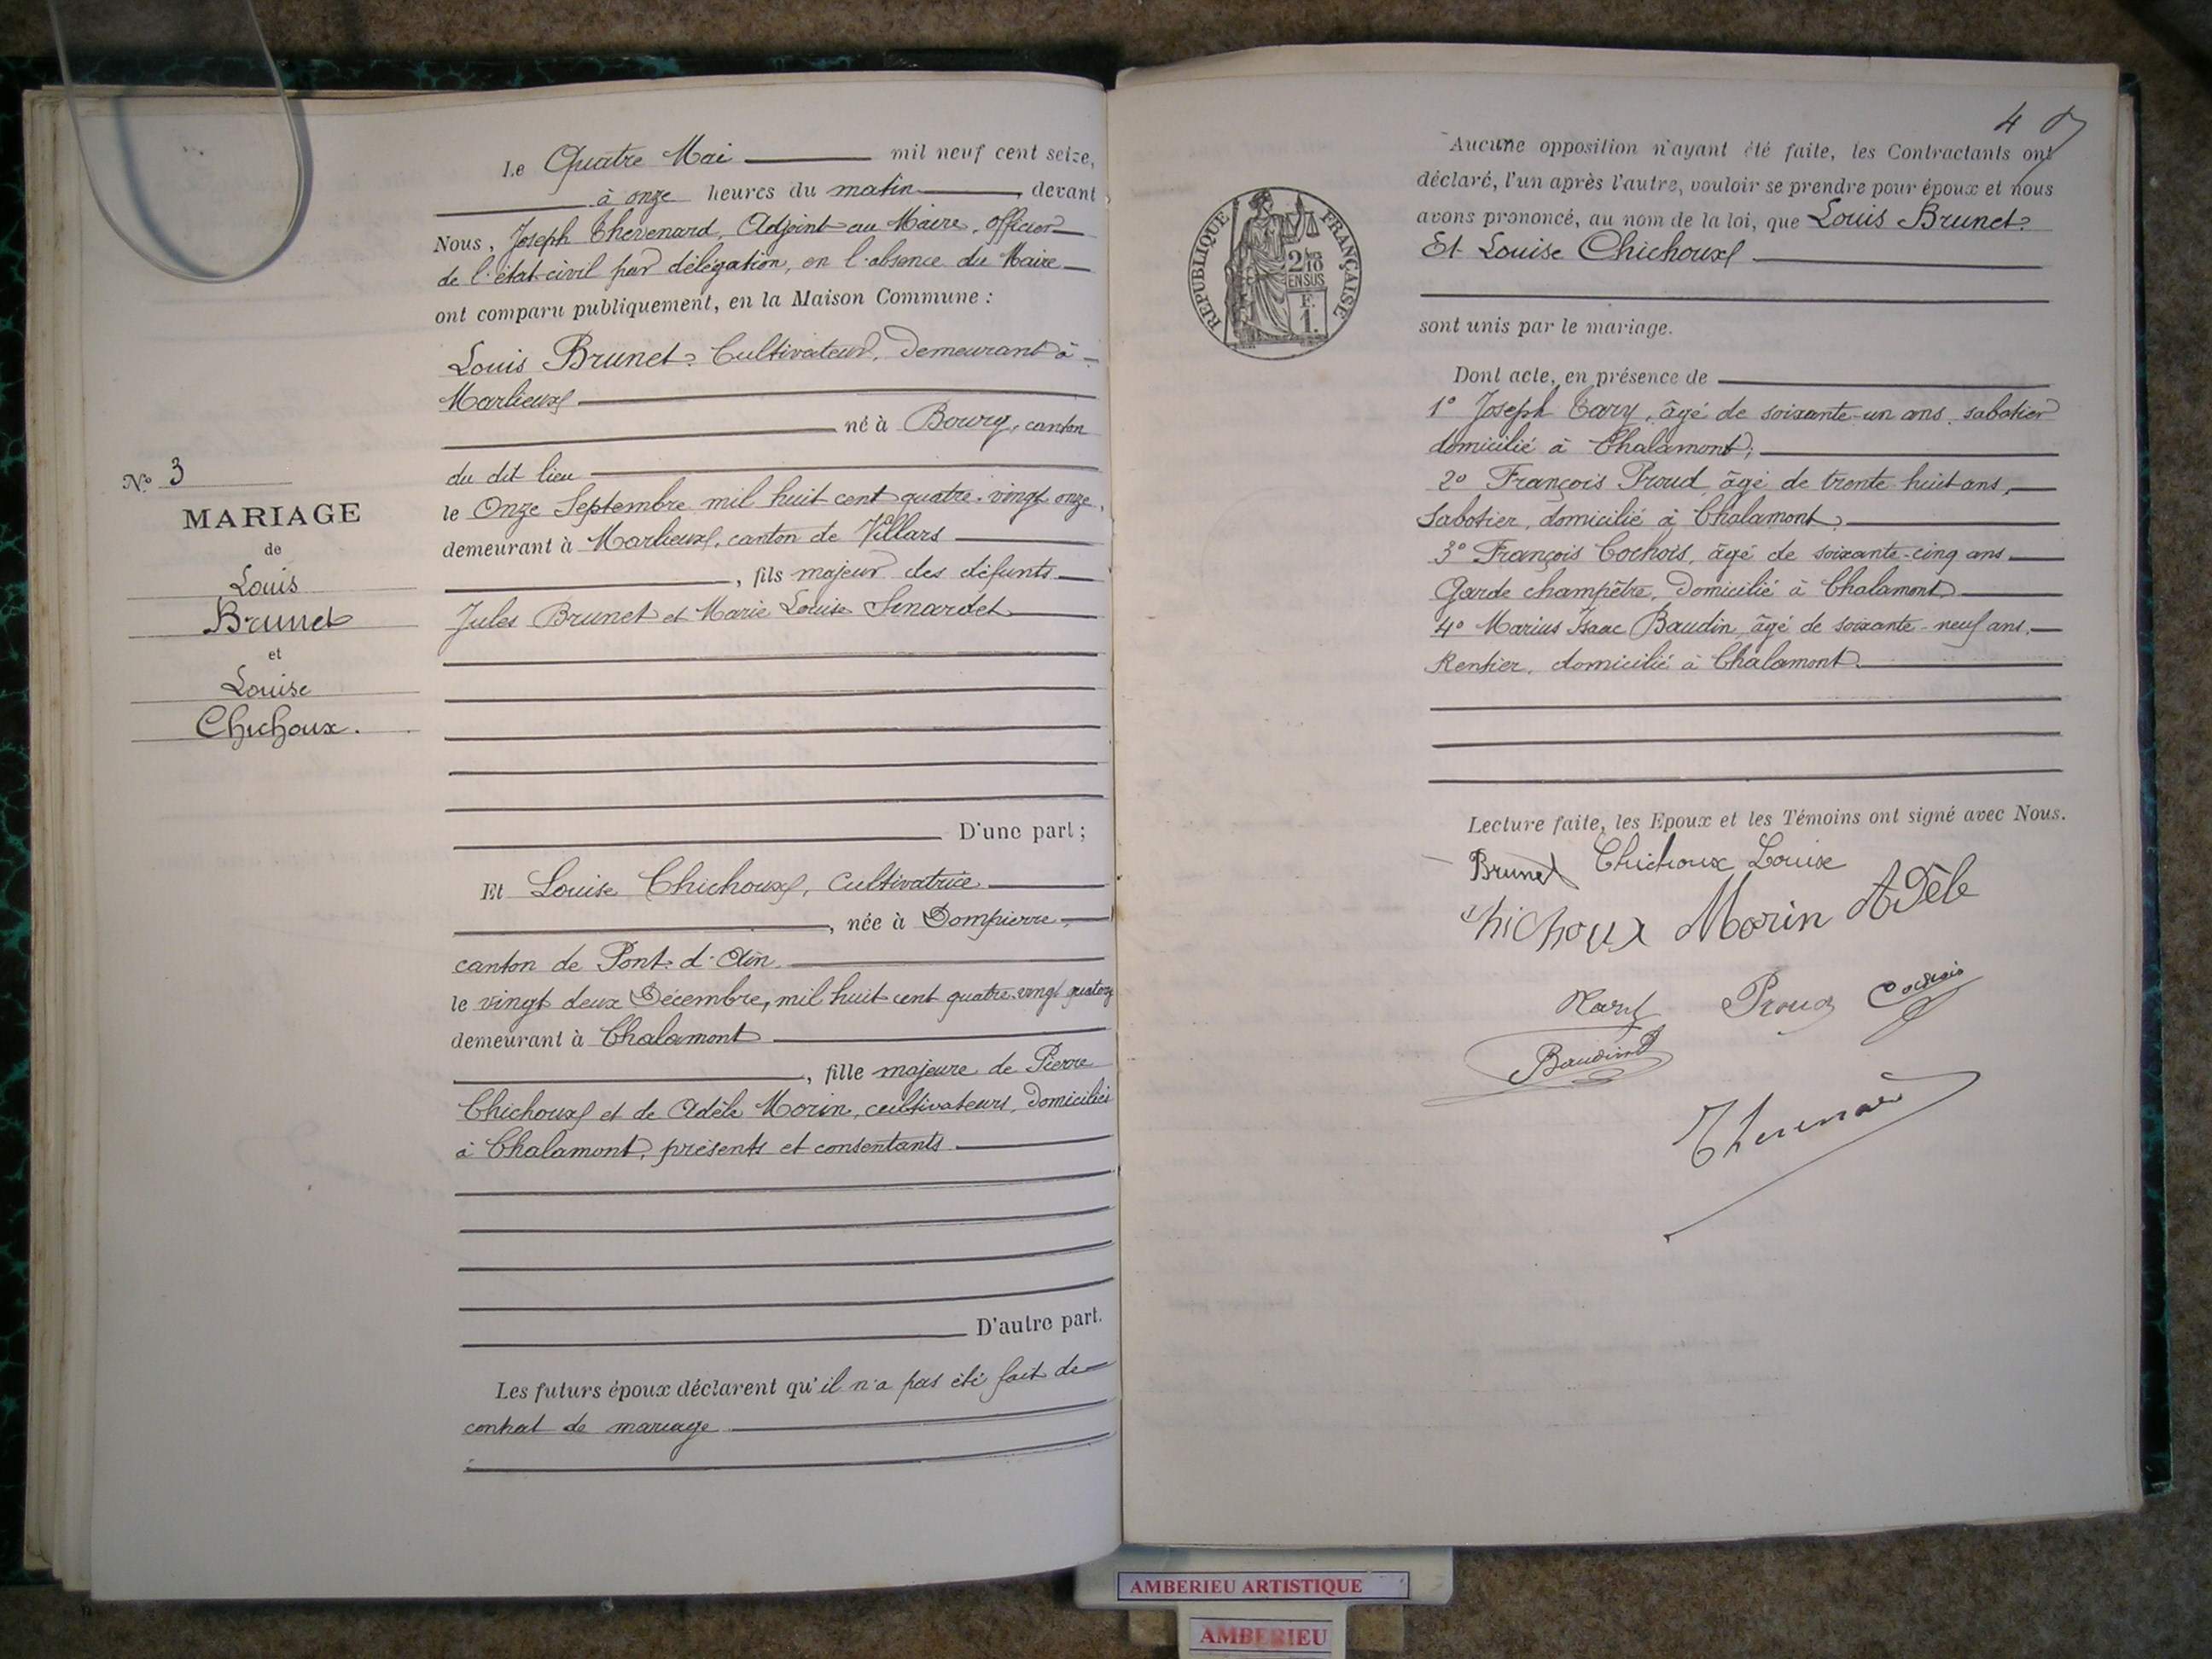 Le Quatre Mai mil neuf cent seize,
à onze heures du matin, devant
Nous, Joseph Thévenard, Adjoint au Maire, officier
de l'état civil par délégation, en l'absence du Maire
ont comparu publiquement, en la Maison Commune :
Louis Brunet, Cultivateur, demeurant à
Marlieux
né à Bourg, canton
du dit lieu
le Onze Septembre mil huit cent quatre-vingt onze,
demeurant à Marlieux, canton de Villars
, fils majeur des défunts
Jules Brunet et Marie Louise Senardet
D'une part ;
Et Louise Chichoux, Cultivatrice
, née à Dompierre,
canton de Pont-d'Ain
le vingt deux Décembre, mil huit cent quatre-vingt quatorze
demeurant à Chalamont
, fille majeure de Pierre
Chichoux et de Adèle Morin, cultivateurs, domiciliés
à Chalamont, présents et consentants
D'autre part.
Les futurs époux déclarent qu'il n'a pas été fait de
contrat de mariage
No 3
MARIAGE
de
Louis
Brunet
et
Louise
Chichoux.
4
Aucune opposition n'ayant été faite, les Contractants ont
déclaré, l'un après l'autre, vouloir se prendre pour époux et nous
avons prononcé, au nom de la loi, que Louis Brunet
Et Louise Chichoux
sont unis par le mariage.
RÉPUBLIQUE FRANÇAISE
2/10
EN SUS
F.
1.
Dont acte, en présence de
1° Joseph Cary, âgé de soixante-un ans, sabotier
domicilié à Chalamont;
2° François Proud, âgé de trente-huit ans,
Sabotier, domicilié à Chalamont,
3° François Cochois, âgé de soixante-cinq ans
Garde champêtre, Domicilié à Chalamont
4° Marius Isaac Baudin, âgé de soixante-neuf ans,
Rentier, domicilié à Chalamont
Lecture faite, les Epoux et les Témoins ont signé avec Nous.
Brunet Chichoux Louise
Chichoux Morin Adèle
Proud Cochois
Baudin
Thevenard
AMBERIEU ARTISTIQUE
AMBERIEU